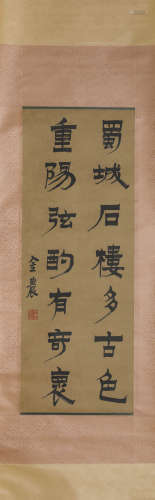 蜀城石樓多古色
重陽弦酌有奇褱
金農